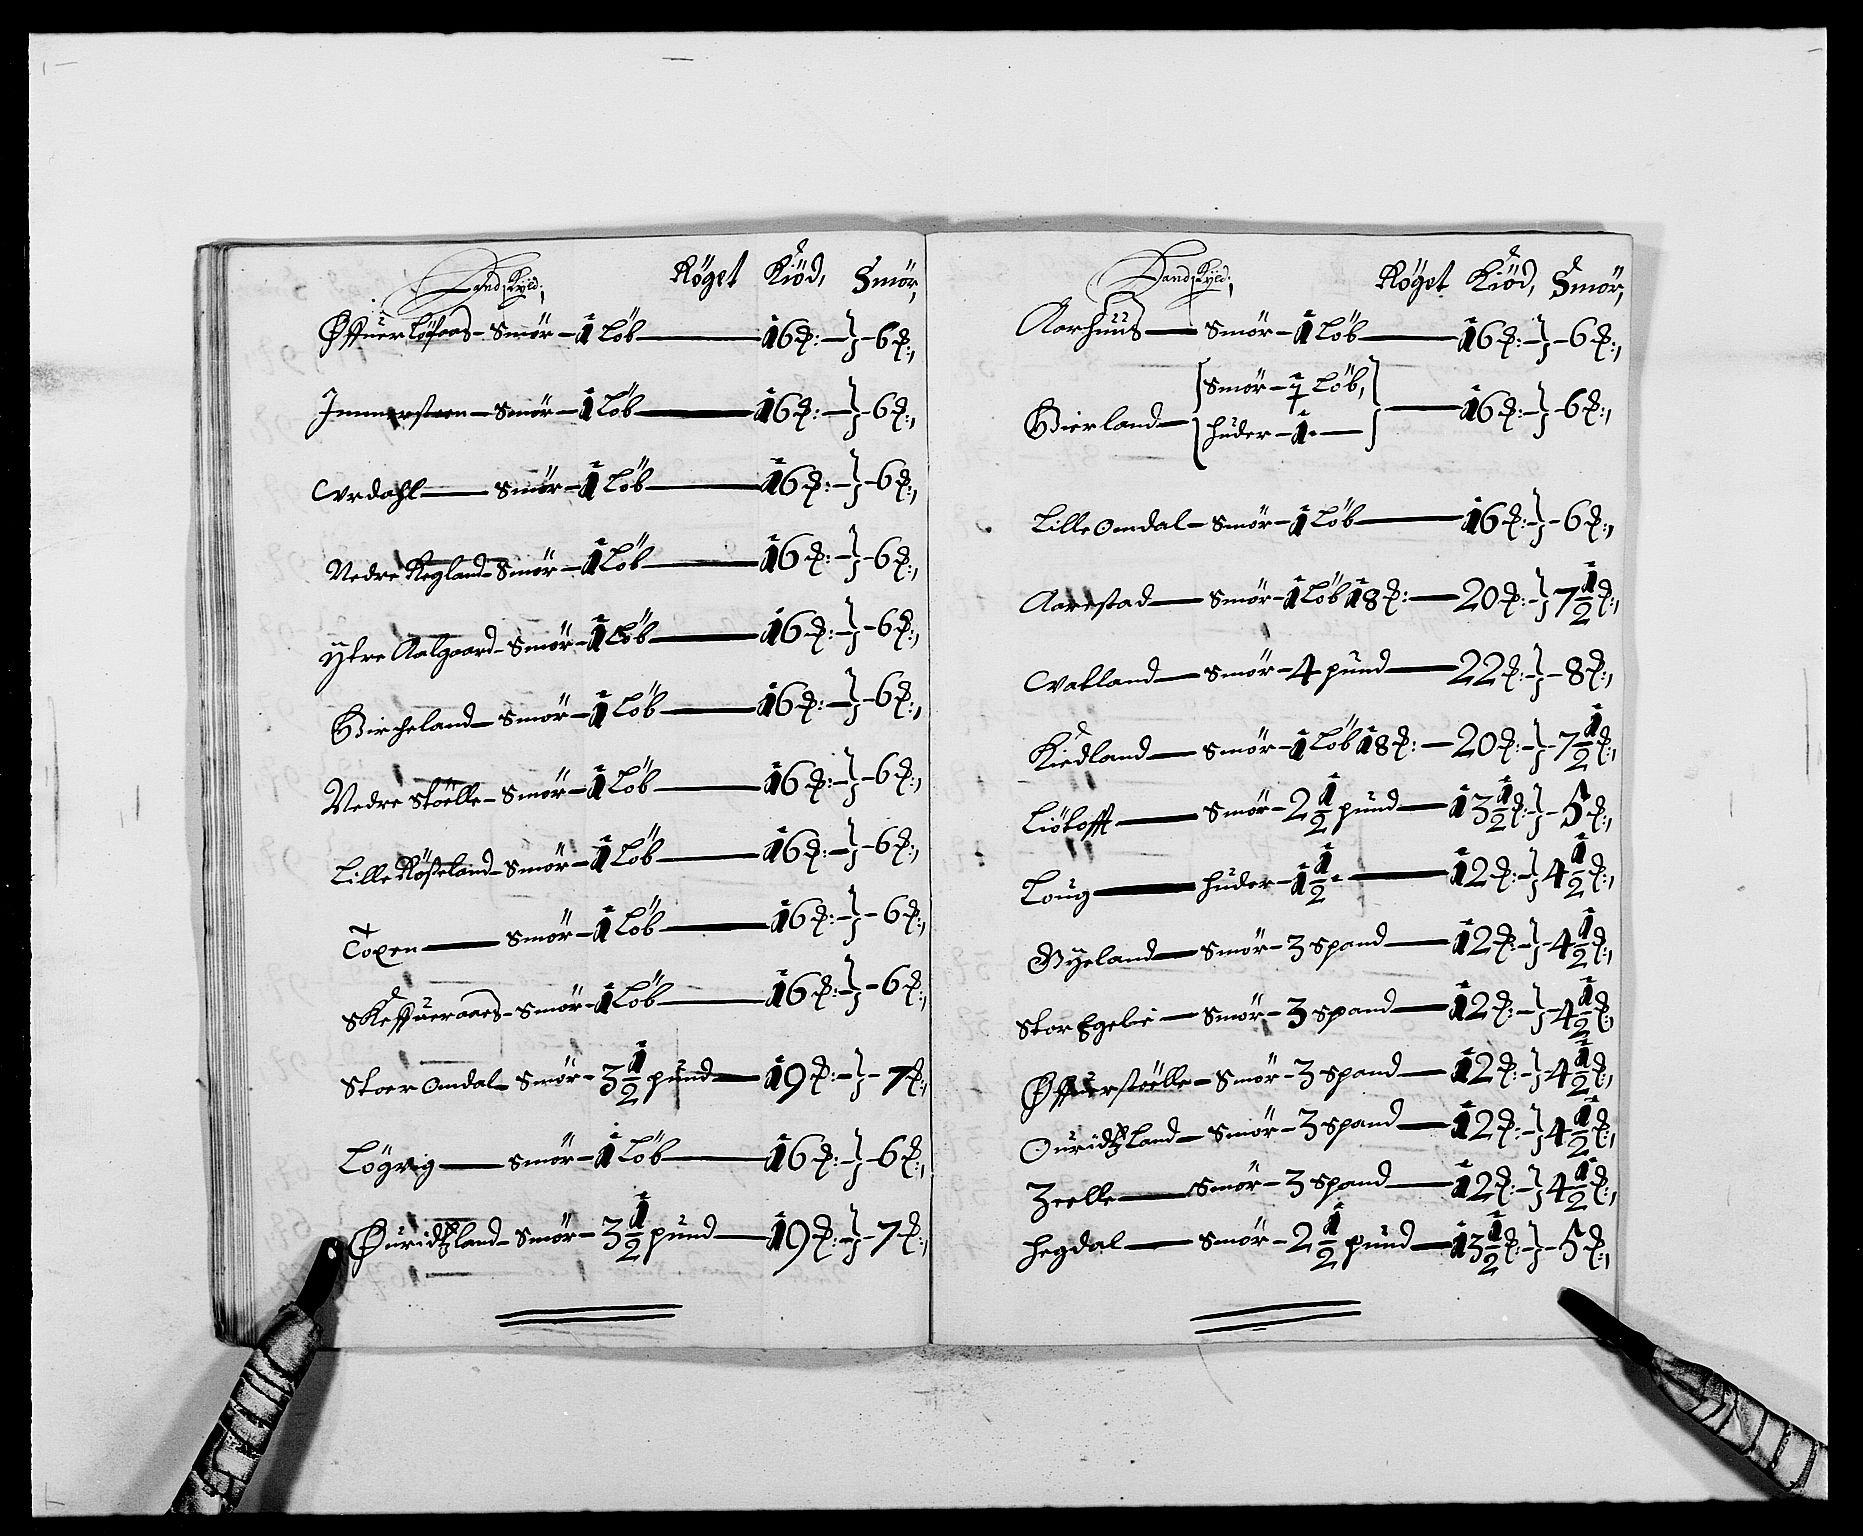 Landskyld, Röget Kiöd, Smör,
Øffuer Löfaas - Smör - 1 Löb — 16 ℔: — } - 6 ℔:,
Immersteen - Smör - 1 Löb — 16 ℔: — } - 6 ℔:,
Ovrdahl — Smör - 1 Löb — 16 ℔: — } - 6 ℔:,
Nedre Regland - Smör - 1 Löb — 16 ℔: — } - 6 ℔:,
Ytre Aalgaard - Smör - 1 Löb — 16 ℔: — } - 6 ℔:,
Bircheland - Smör - 1 Löb — 16 ℔: — } - 6 ℔:,
Nedre Stöelle - Smör - 1 Löb — 16 ℔: — } - 6 ℔:,
Lille Rößeland - Smör - 1 Löb — 16 ℔: — } - 6 ℔:,
Topen — Smör - 1 Löb — 16 ℔: — } - 6 ℔:,
Skeffueraaes - Smör - 1 Löb — 16 ℔: — } - 6 ℔:,
Stoer Omdal - Smör - 3 1/2 pund — 19 ℔: — } - 7 ℔:,
Lögvig — Smör - 1 Löb — 16 ℔: — } - 6 ℔:,
Øuridtzland - Smör - 3 1/2 pund — 19 ℔: — } - 7 ℔:,
Landskyld, Röget Kiöd, Smör,
Aarhuus — Smör - 1 Löb — 16 ℔: — } - 6 ℔:,
Bierland — { Smör - 1/2 Löb, } — 16 ℔: — } - 6 ℔:,
huder - 1 · —
Lille Omdal - Smör - 1 Löb — 16 ℔: — } - 6 ℔:,
Aarestad — Smör - 1 Löb 18 ℔: — 20 ℔: — } 7 1/2 ℔:,
Watland — Smör - 4 pund — 22 ℔: — } - 8 ℔:,
Kiedland — Smör - 1 Löb 18 ℔: — 20 ℔: — } - 7 1/2 ℔:,
Liötofft — Smör - 2 1/2 pund — 13 1/2 ℔: — } - 5 ℔:,
Loug — huder - 1 1/2 · — 12 ℔: — } 4 1/2 ℔:,
Byeland — Smör - 3 Spand — 12 ℔: — } - 4 1/2 ℔:,
Stor Egelie — Smör - 3 Spand — 12 ℔: — } - 4 1/2 ℔:,
Øffuerstöelle - Smör - 3 Spand — 12 ℔: — } - 4 1/2 ℔:,
Ouridtzland - Smör - 3 Spand — 12 ℔: — } 4 1/2 ℔:,
Zeelle — Smör - 3 Spand — 12 ℔: — } 4 1/2 ℔:,
hegdal — Smör - 2 1/2 pund — 13 1/2 ℔: — } - 5 ℔:,